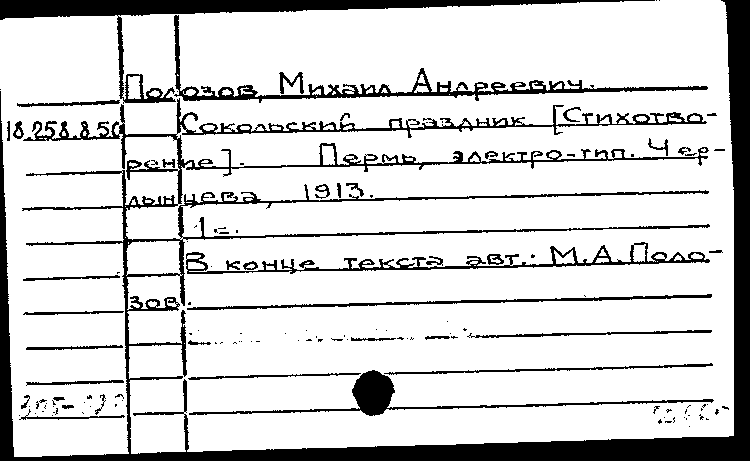 Полозов, Михаил Андреевич.
18.258.8.50 Сокольский праздник [Стихотво-
рение]. Пермь, электро-тип. Чер-
дынцева, 1913.
1 с.
В конце текста авт.: М.А. Поло-
зов.